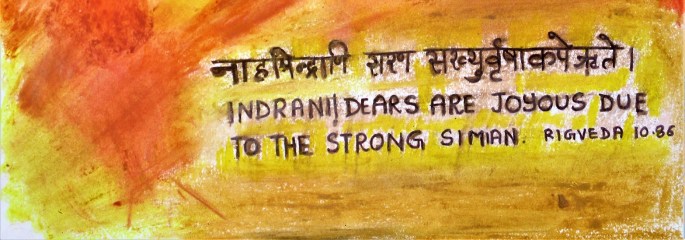 नाहमिन्द्राणि सरण सख्युर्वृषाकपेऋते।
INDRANI! DEARS ARE JOYOUS DUE
TO THE STRONG SIMIAN. RIGVEDA 10.86